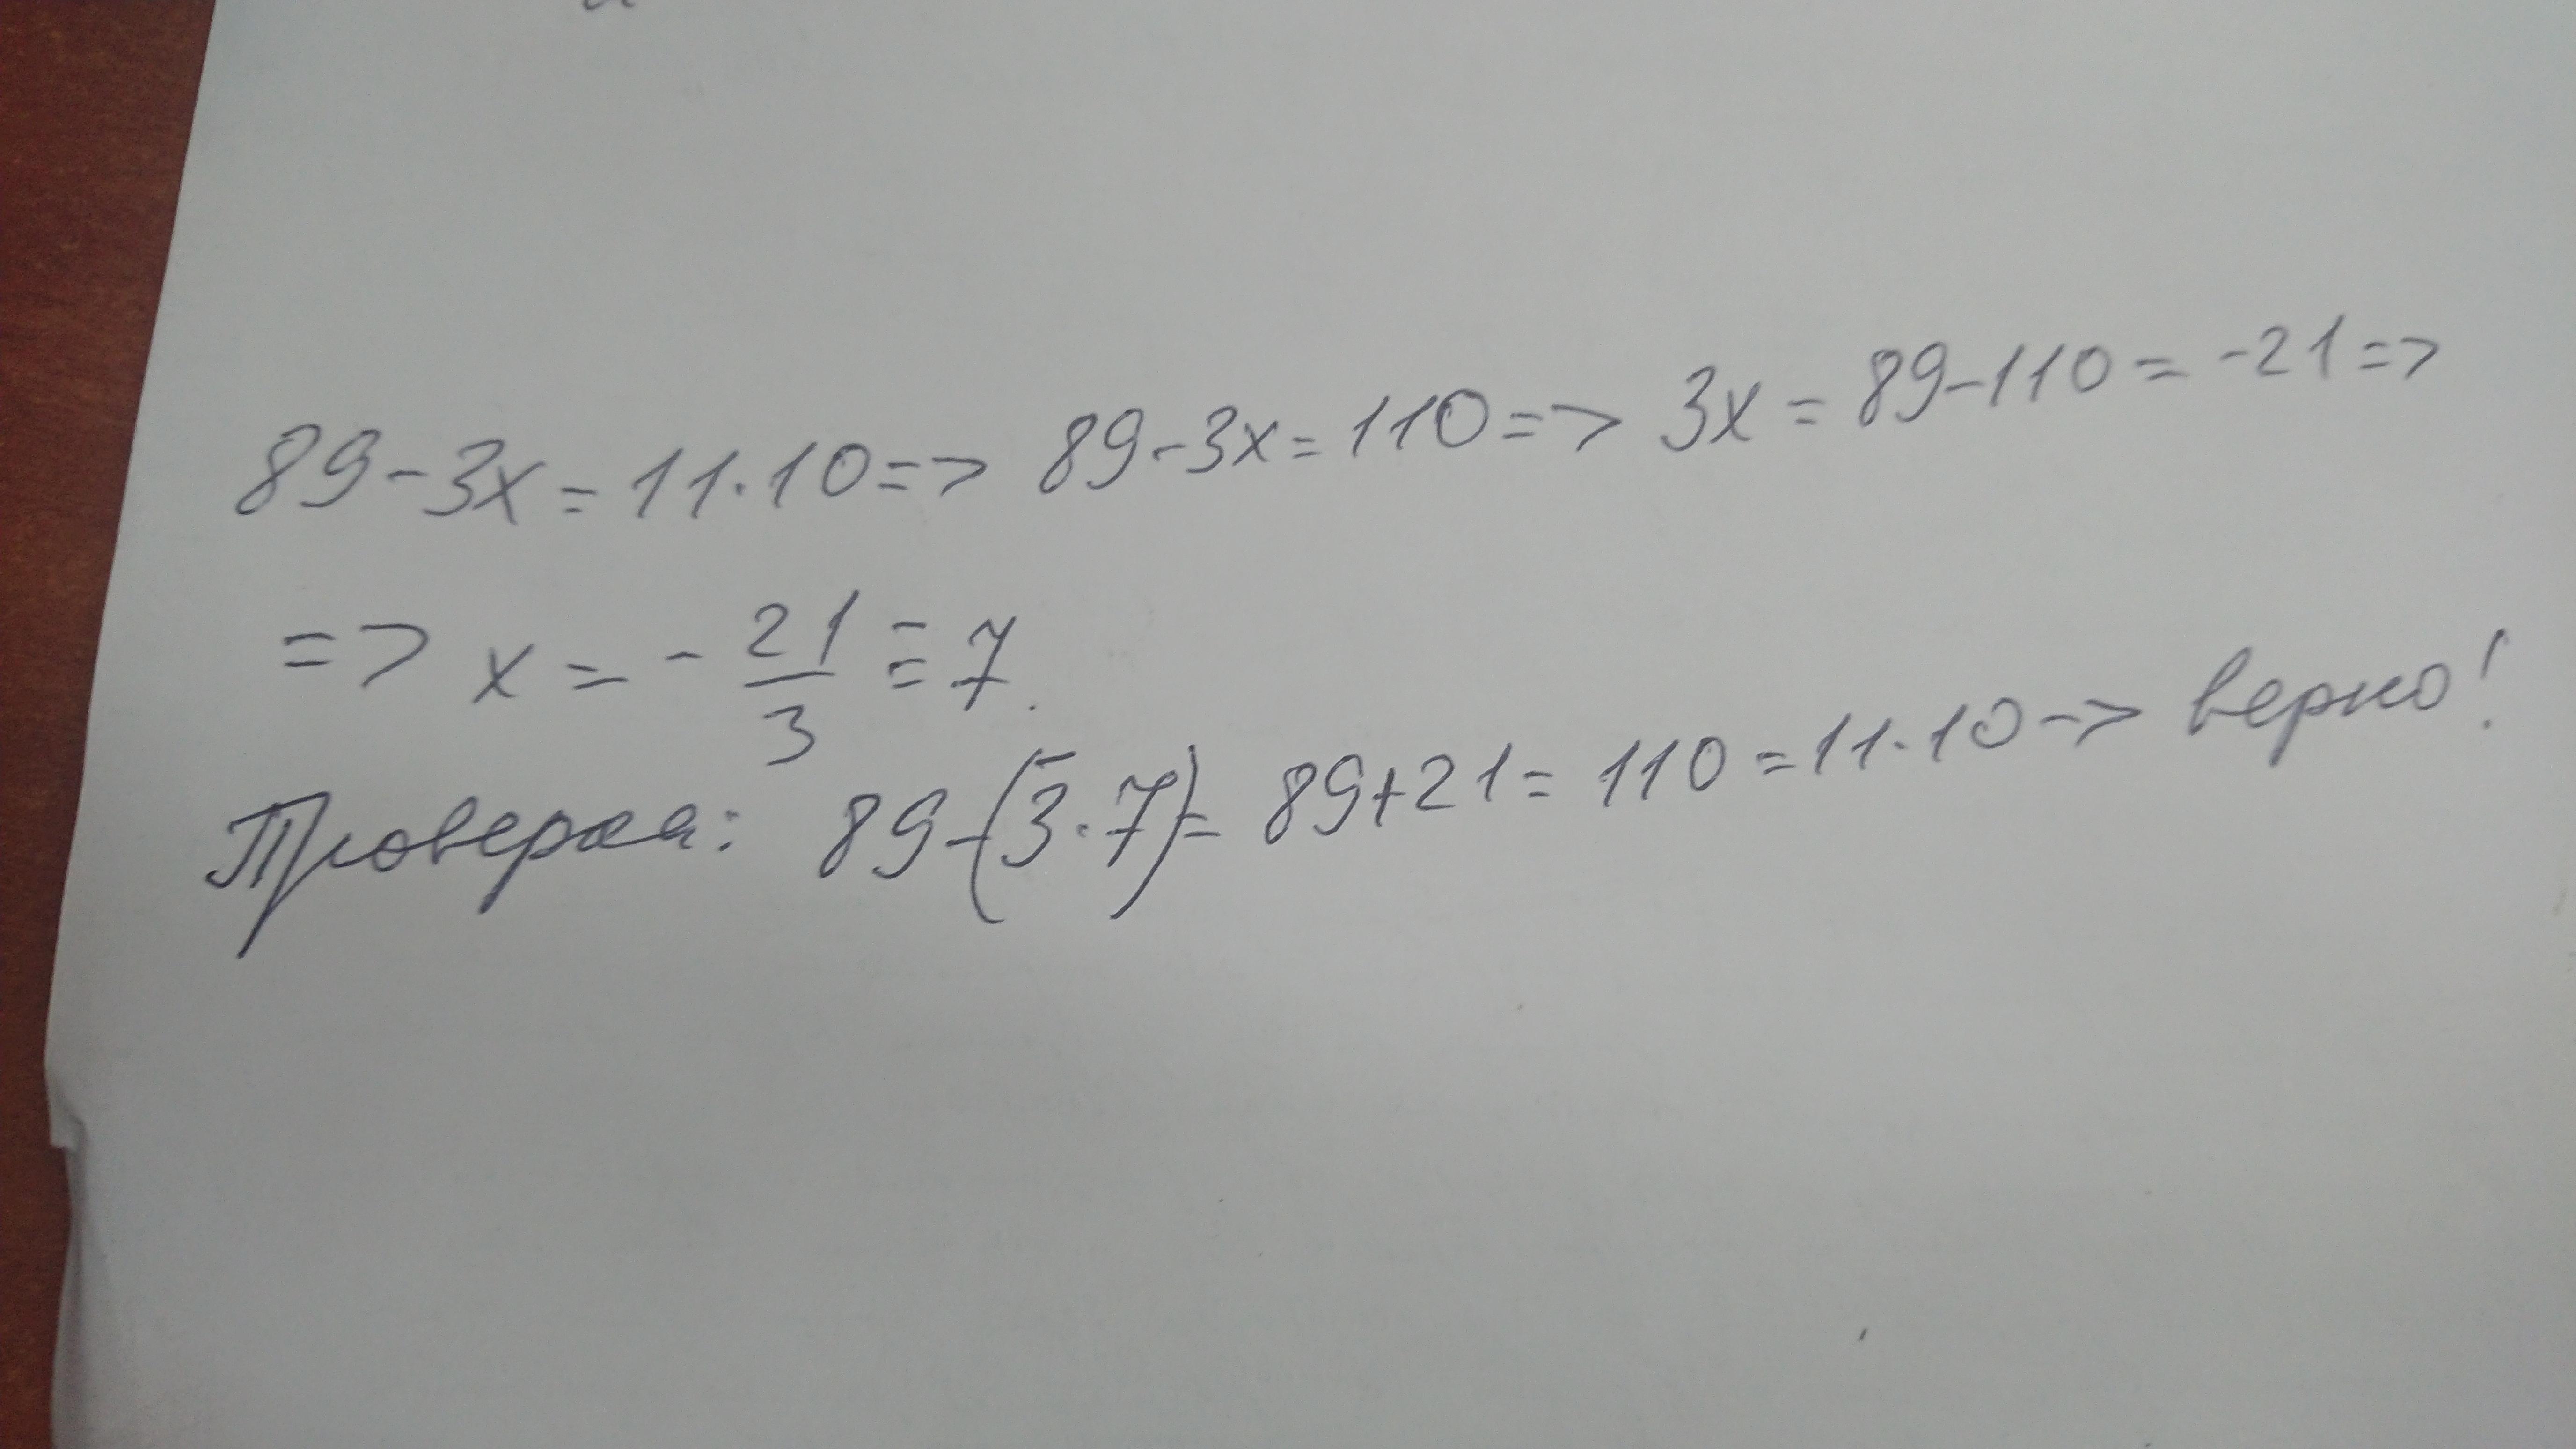 89-3x=11·10=> 89-3x=110=> 3x=89-110=-21=>
=> x=-21/3=-7.
Проверка: 89-(-3·7)=89+21=110=11·10-> верно!